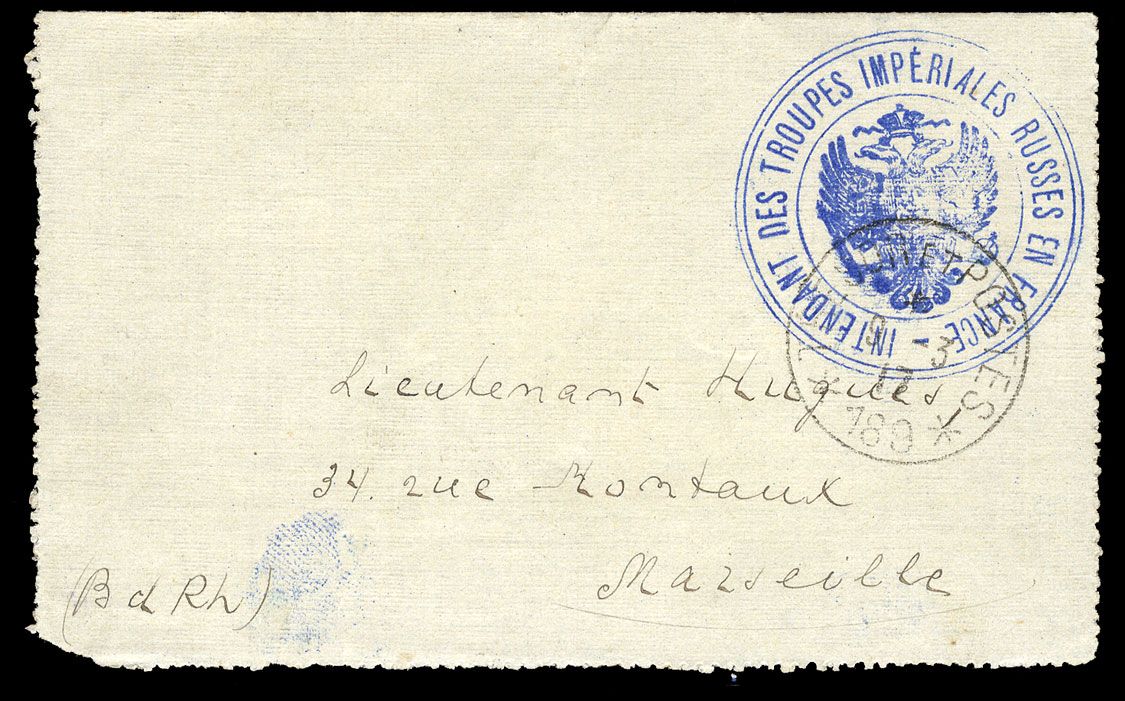 INTENDANT DES TROUPES IMPÉRIALES RUSSES EN FRANCE -
TRÉSOR ET POSTES
9 -3
17
* 189 *
Lieutenant Hugues
34. rue Montaux
Marseille
(B d Rh)